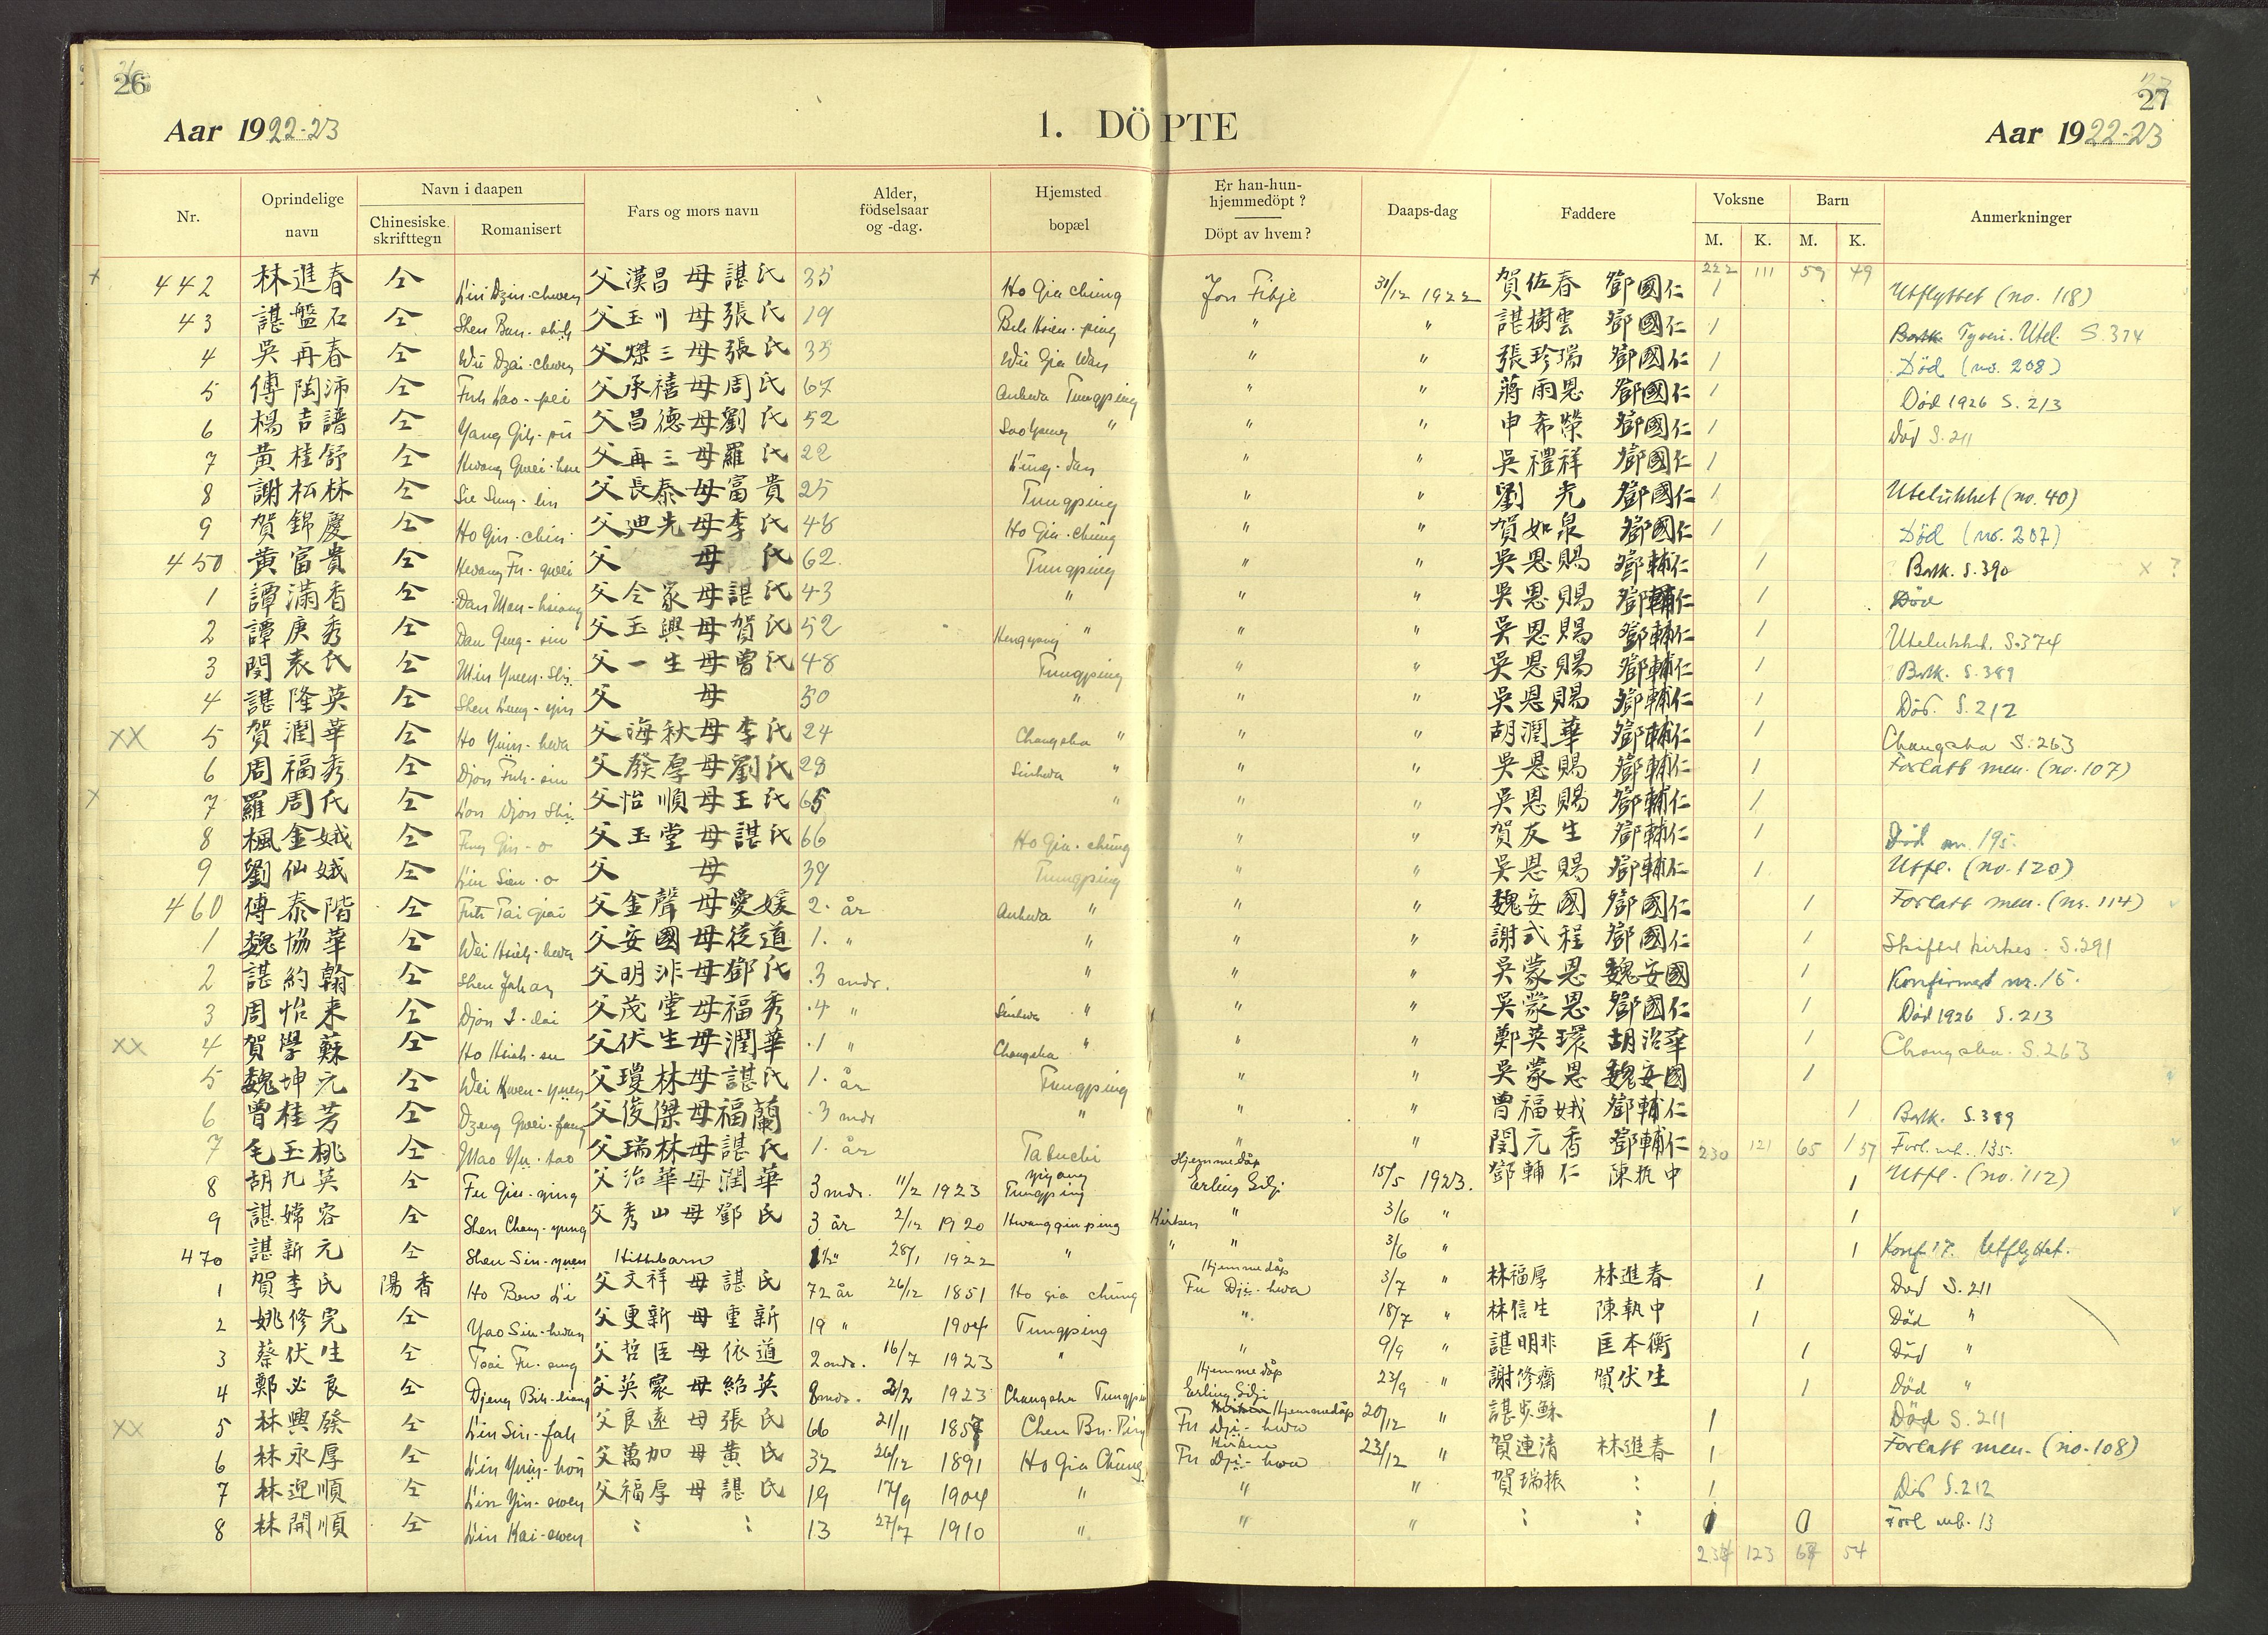 26
27
Aar 1922-23
1. DÖPTE
Aar 1922-23
Nr. Oprindelige navn Navn i daapen Chinesiske skrifttegn Romanisert Fars og mors navn Alder, födselsaar og -dag. Hjemsted bopæl Er han-hun-hjemmedöpt? Döpt av hvem? Daaps-dag Faddere Voksne M. K. Barn M. K. Anmerkninger
222 111 59 49
442 林進春 仝 Lin Dzin-chwen 父漢昌母諶氏 35 Ho Gia chung Jon Fitje 31/12 1922 賀佐春 鄧國仁 1 Utflyttet (no. 118)
43 諶盤石 仝 Shen Ban-shih 父玉川母張氏 19 Beh Hsien-ping " " 諶樹雲 鄧國仁 1 Tyveri. Utel. S. 374
4 吳再春 仝 Wu Dzai-chwen 父燦三母張氏 35 Wu Gia Wan " " 張珍瑞 鄧國仁 1 Död (no. 208)
5 傅陶沛 仝 Fuh Tao-pei 父承禧母周氏 67 Anhwa Tungping " " 蔣雨恩 鄧國仁 1 Död 1926 S. 213
6 楊吉譜 仝 父昌德母劉氏 52 " " " 申希榮 鄧國仁 1 Död S. 211
7 黃桂舒 仝 Hwang Gwei-hsu 父再三母羅氏 22 " " 吳禮祥 鄧國仁 1
8 謝松林 仝 Sie Sung-lin 父長泰母富貴 25 Tungping " " 劉光 鄧國仁 1 Utelukket (no. 40)
9 賀錦慶 仝 Ho Gin-chin 父迎光母李氏 48 Ho Gia-chung " " 賀如泉 鄧國仁 1 Död (no. 207)
450 黃富貴 仝 Hwang Fu-gwei 父 母 氏 62 Tungping " " 吳恩賜 鄧輔仁 1 Bortk. S. 390 x ?
1 譚滿香 仝 Dan Man-hsiang 父全家母諶氏 43 " " " 吳恩賜 鄧輔仁 1 Död
2 譚庚秀 仝 Dan Geng-siu 父玉興母賀氏 52 Hengyang " " " 吳恩賜 鄧輔仁 1 Utelukket. S. 374
3 閔袁氏 仝 Min Yuen-Shi 父一生母曾氏 48 Tungping " " 吳恩賜 鄧輔仁 1 Bortk. S. 389
4 諶隆英 仝 Shen Lung-yin 父 母 50 " " " 吳恩賜 鄧輔仁 1 Död. S. 212
XX 5 賀潤華 仝 Ho Yuin-hwa 父海秋母李氏 24 Changsha " " " 胡潤華 鄧輔仁 1 Changsha S. 263
6 周福秀 仝 Djou Fuh-siu 父發厚母劉氏 28 Sinhwa " " " 吳恩賜 鄧輔仁 1 Forlatt men. (no. 107)
x 7 羅周氏 仝 Lou Djou Shi 父怡順母王氏 65 " " " 吳恩賜 鄧輔仁 1
8 楓金娥 仝 Fung Gin-o 父玉堂母諶氏 66 Ho Gia-chung " " 賀友生 鄧輔仁 1 Död nr. 195
9 劉仙娥 仝 Liu Sien-o 父 母 39 Tungping " " 吳恩賜 鄧輔仁 1 Utfl. (no. 120)
460 傅泰階 仝 Fuh Tai giai 父金聲母愛媛 2. år Anhwa " " " 魏安國 鄧國仁 1 Forlatt men. (nr. 114)
1 魏協華 仝 Wei Hsieh-hwa 父安國母從道 1. " " " " 謝式程 鄧國仁 1 Skiftet kirkes. S. 291
2 諶約翰 仝 Shen Johan 父明非母鄧氏 3 mdr. " " " 吳蒙恩 魏安國 1 Konfirmert nr. 15.
3 周怡來 仝 Djou I-lai 父茂堂母福秀 4 " Sinhwa " " " 吳蒙恩 鄧國仁 1 Död 1926 S. 213
XX 4 賀學蘇 仝 Ho Hsioh-su 父伏生母潤華 1 " Changsha " " " 鄭英環 胡治華 1 Changsha. S. 263
5 魏坤元 仝 Wei Kwen-yuen 父瓊林母諶氏 1. år Tungping " " 吳蒙恩 魏安國 1
6 曾桂芳 仝 Dzeng Gwei-fang 父俊傑母福蘭 3 mdr " " " 曾福娥 鄧輔仁 1 Bortk. S. 389
7 毛玉桃 仝 Mao Yu-tao 父瑞林母諶氏 1. år Tatuchi " " 閔元香 鄧輔仁 230 121 65 1 57 Forl. mb. 135.
8 胡九英 仝 Fu Giu-ying 父治華母潤華 3 mdr. 11/2 1923 Yiyang Tungping Hjemmedåp Erling Gilje 15/5 1923. 鄧輔仁 陳執中 1 Utfl. (no. 112)
9 諶嫦容 仝 Shen Chang-yung 父秀山母鄧氏 3 år 2/12 1920 Hwangqinping Kirken " 3/6 " 1
470 諶新元 仝 Shen Sin-yuen Hittebarn 28/1 1922 " " " 3/6 " 1 Konf. 17. Utflyttet.
1 賀李氏 陽香 Ho Ben Li 父文祥母諶氏 72 år 26/12 1851 Ho gia chung Hjemmedåp Fu Dji-hwa 3/7 " 林福厚 林進春 1 Död S. 211
2 姚修完 仝 Yao Siu-hwan 父更新母重新 19 " 1904 Tungping " 18/7 " 林信生 陳執中 1 Död "
3 蔡伏生 仝 Tsai Fu-sung 父哲臣母依道 2 mdr. 16/7 1923 " " 9/9 " 諶明非 匡本衡 1 Död "
4 鄭必良 仝 Djeng Bih-liang 父英寰母紹英 8 mdr. 3/2 1923 Changsha Tungping Hjemmedåp Erling Gilje 23/9 " 謝修齋 賀伏生 1 Död "
XX 5 林興發 仝 Lin Sin-fah 父良遠母張氏 66 21/11 1857 Chen Bu-Ping Hjemmedåp Fu Dji-hwa 20/12 " 諶步蘇 1 Död S. 211
6 林永厚 仝 Lin Yuin-hou 父萬加母黃氏 32 26/12 1891 Ho Gia Chung Kirken Fu Dji-hwa 23/12 " 賀連清 林進春 1 Forlatt men. (no. 108)
7 林迎順 仝 Lin Yin-swen 父福厚母諶氏 19 17/9 1904 " " " 賀瑞振 : 1 Död S. 212
8 林開順 仝 Lin Kai-swen : : 13 27/7 1910 " " " : : Forl mb. 13
123 54